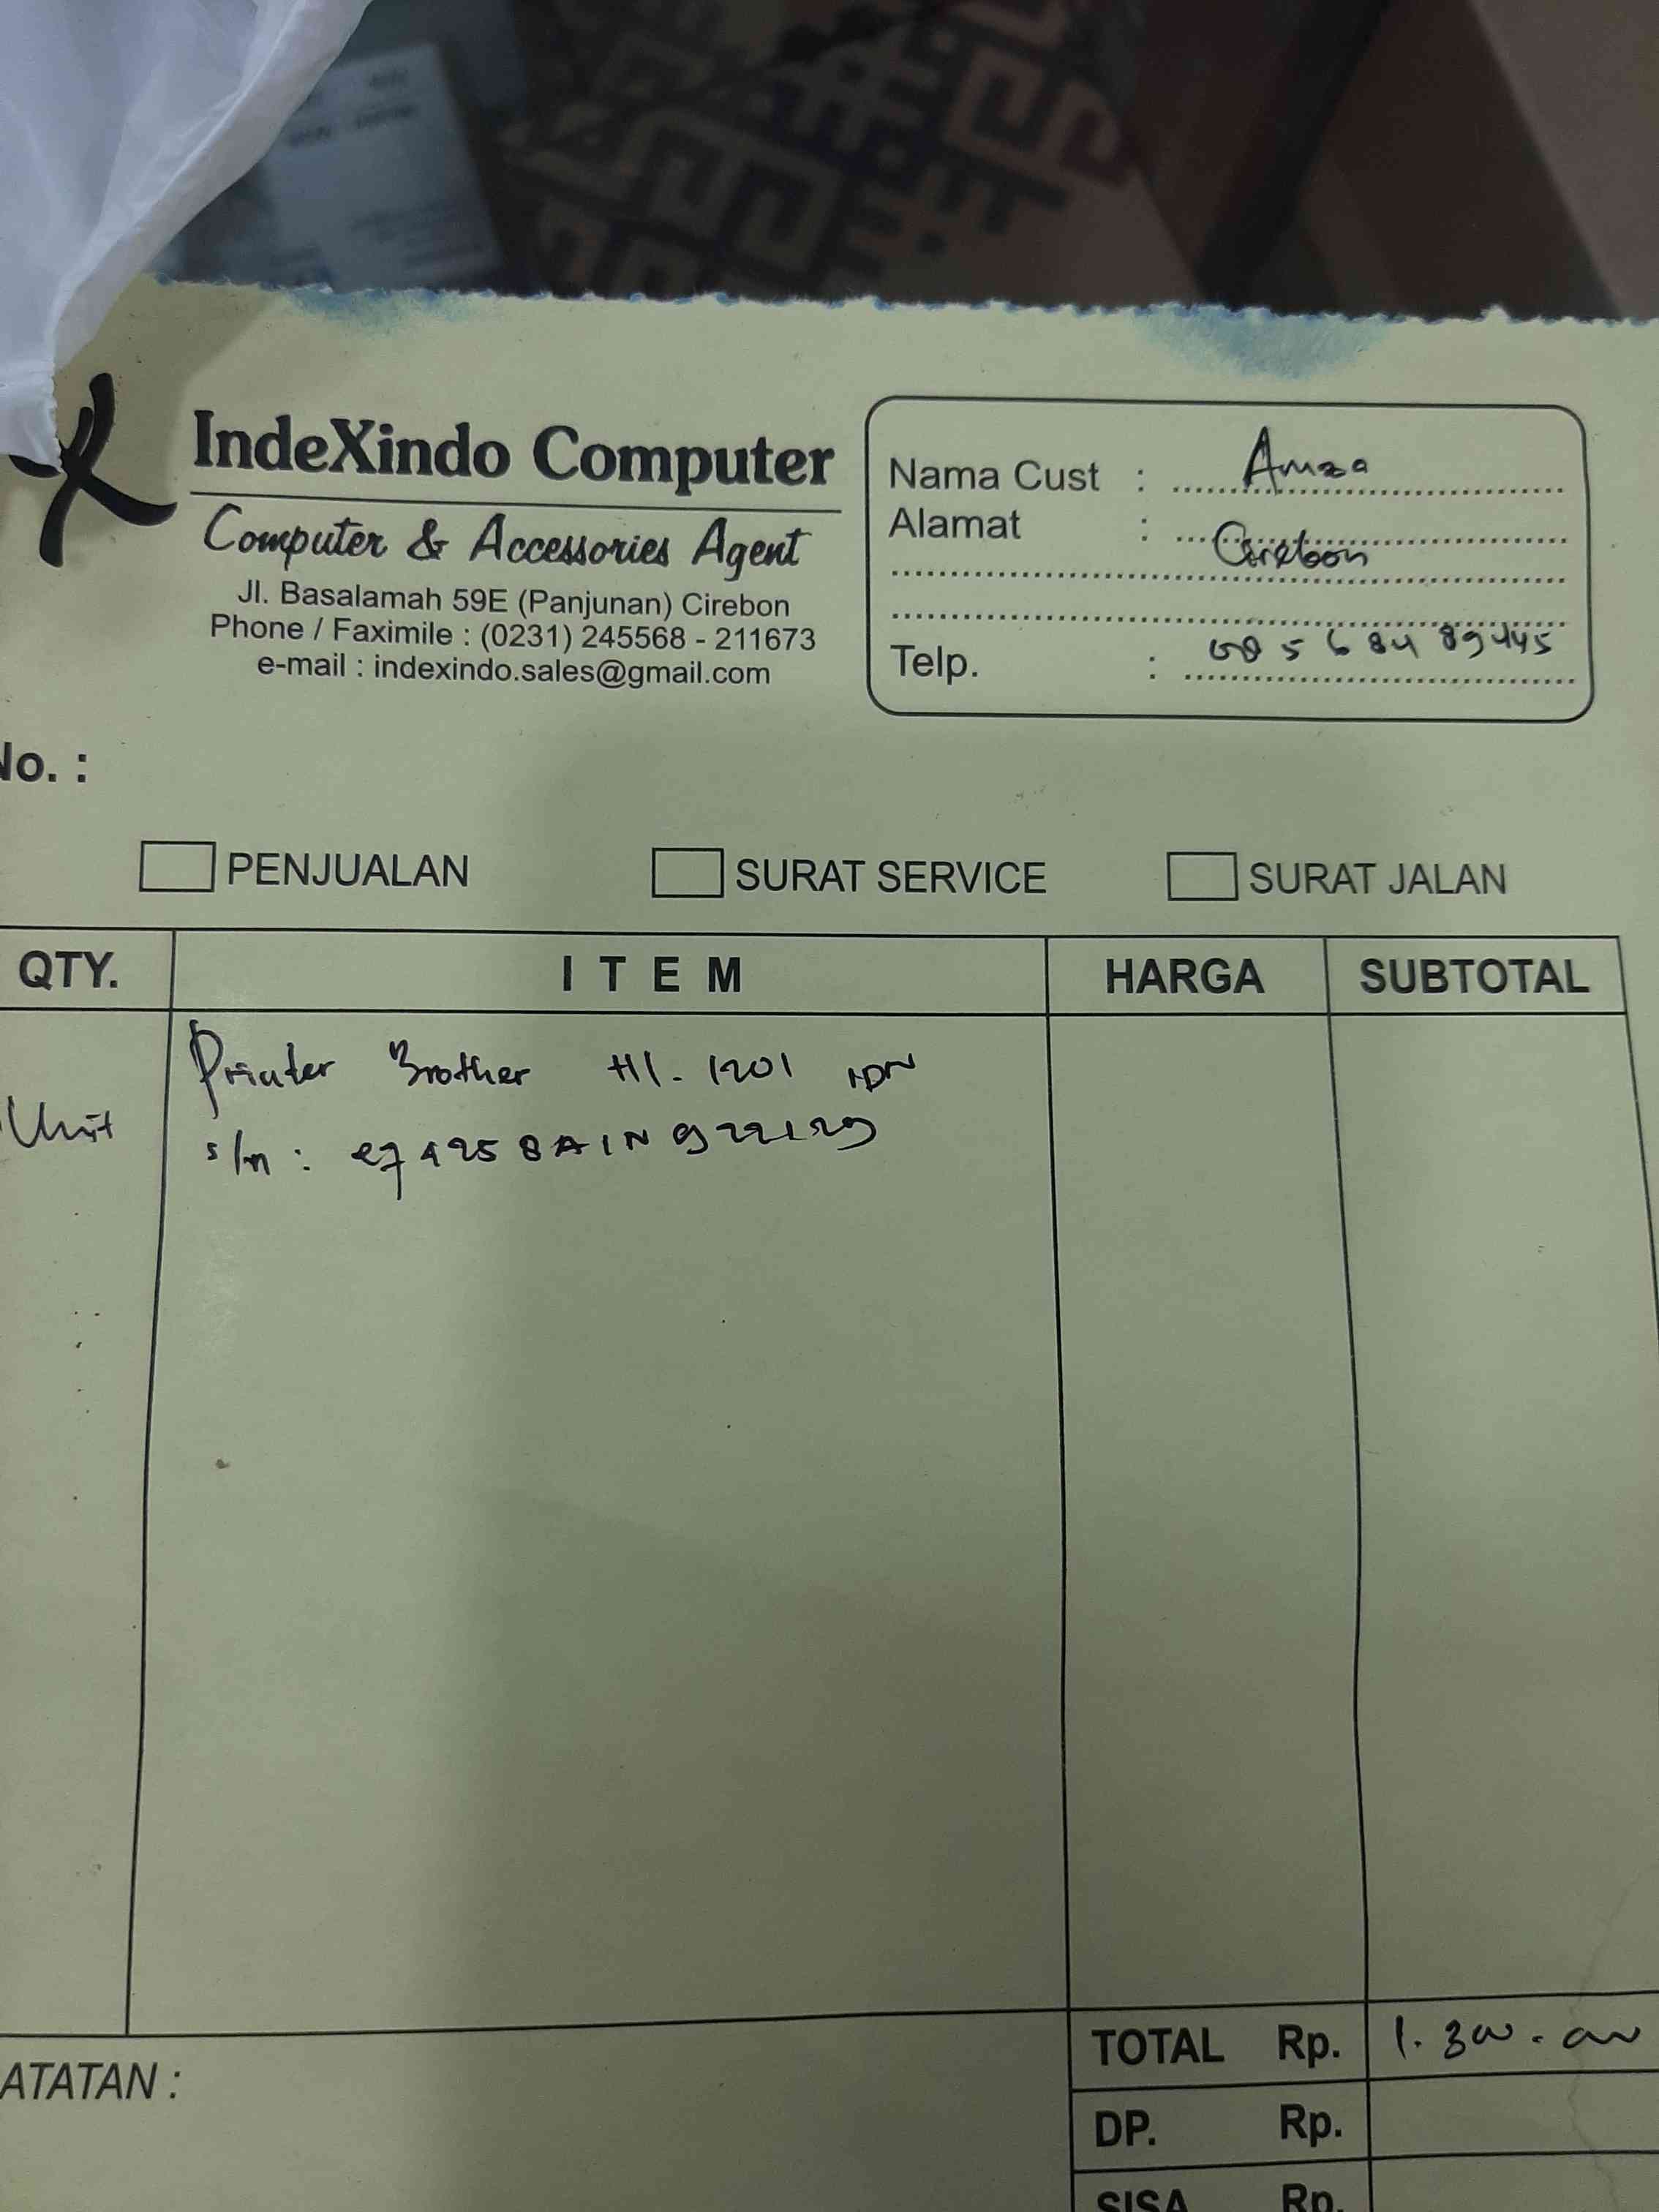 IndeXindo Computer
Computer & Accessories Agent
Jl. Basalamah 59E (Panjunan) Cirebon
Phone / Faximile : (0231) 245568 - 211673
e-mail : indexindo.sales@gmail.com
Nama Cust : Amza
Alamat : Cirebon
Telp. :
No. :
PENJUALAN SURAT SERVICE SURAT JALAN
QTY. ITEM HARGA SUBTOTAL
Printer Brother HL-1201
Unit
s/n :
TOTAL Rp.
ATATAN :
DP. Rp.
SISA Rp.